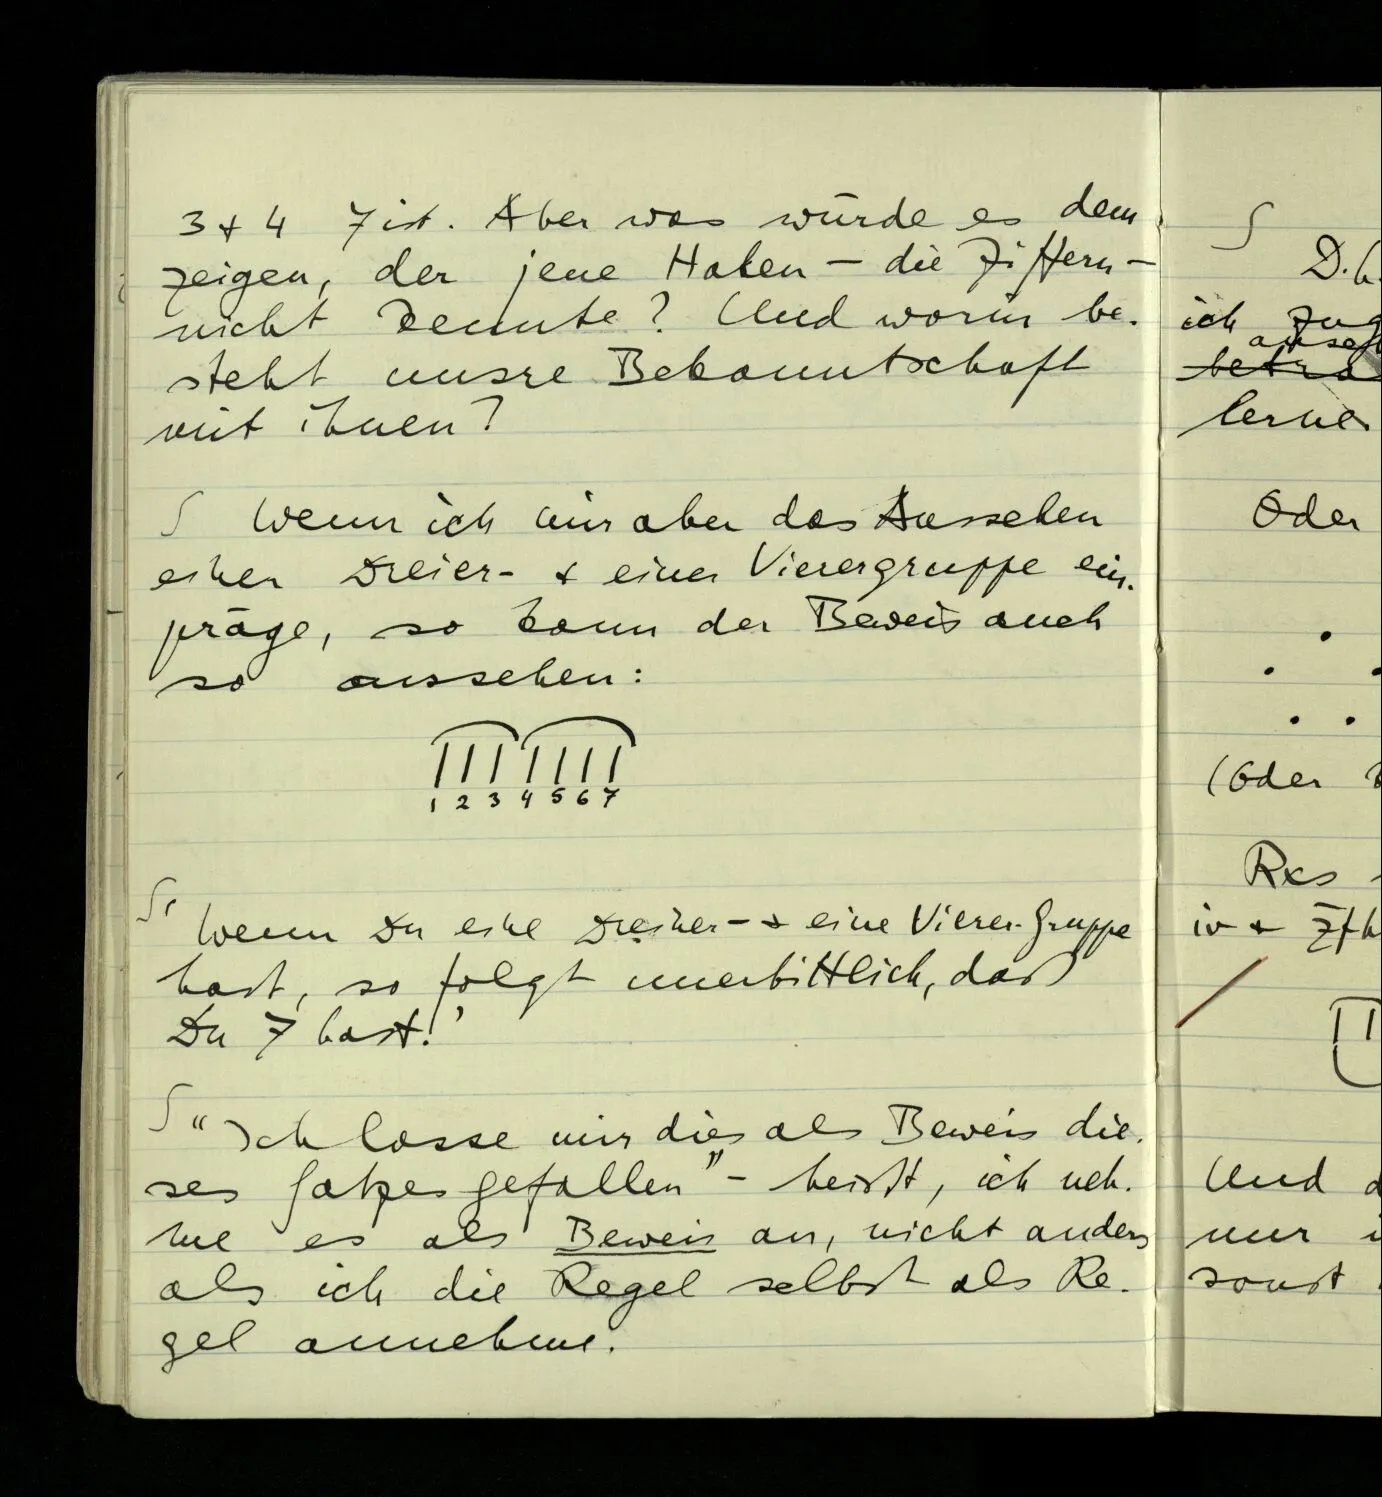 3 + 4 7 ist. Aber was würde es dem
zeigen, der jene Haken – die Ziffern –
nicht kennte? Und worin be-
steht unsre Bekanntschaft
mit ihnen?
∫ Wenn ich mir aber das Aussehen
einer Dreier- & einer Vierergruppe ein-
präge, so kann der Beweis auch
so aussehen:
1 2 3 4 5 6 7
∫ ' Wenn Du eine Dreier- & eine Vierer-Gruppe
hast, so folgt unerbittlich, daß
Du 7 hast.'
∫ "Ich lasse mir dies als Beweis die-
ses Satzes gefallen" – heißt, ich neh-
me es als Beweis an, nicht anders
als ich die Regel selbst als Re-
gel annehme.
∫
D.h.
ich
lerne
Oder
(Oder
Und
nur
sonst